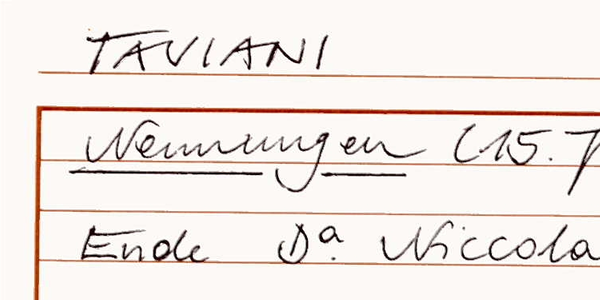 TAVIANI
Nennungen (15.7
Ende Dª Niccola